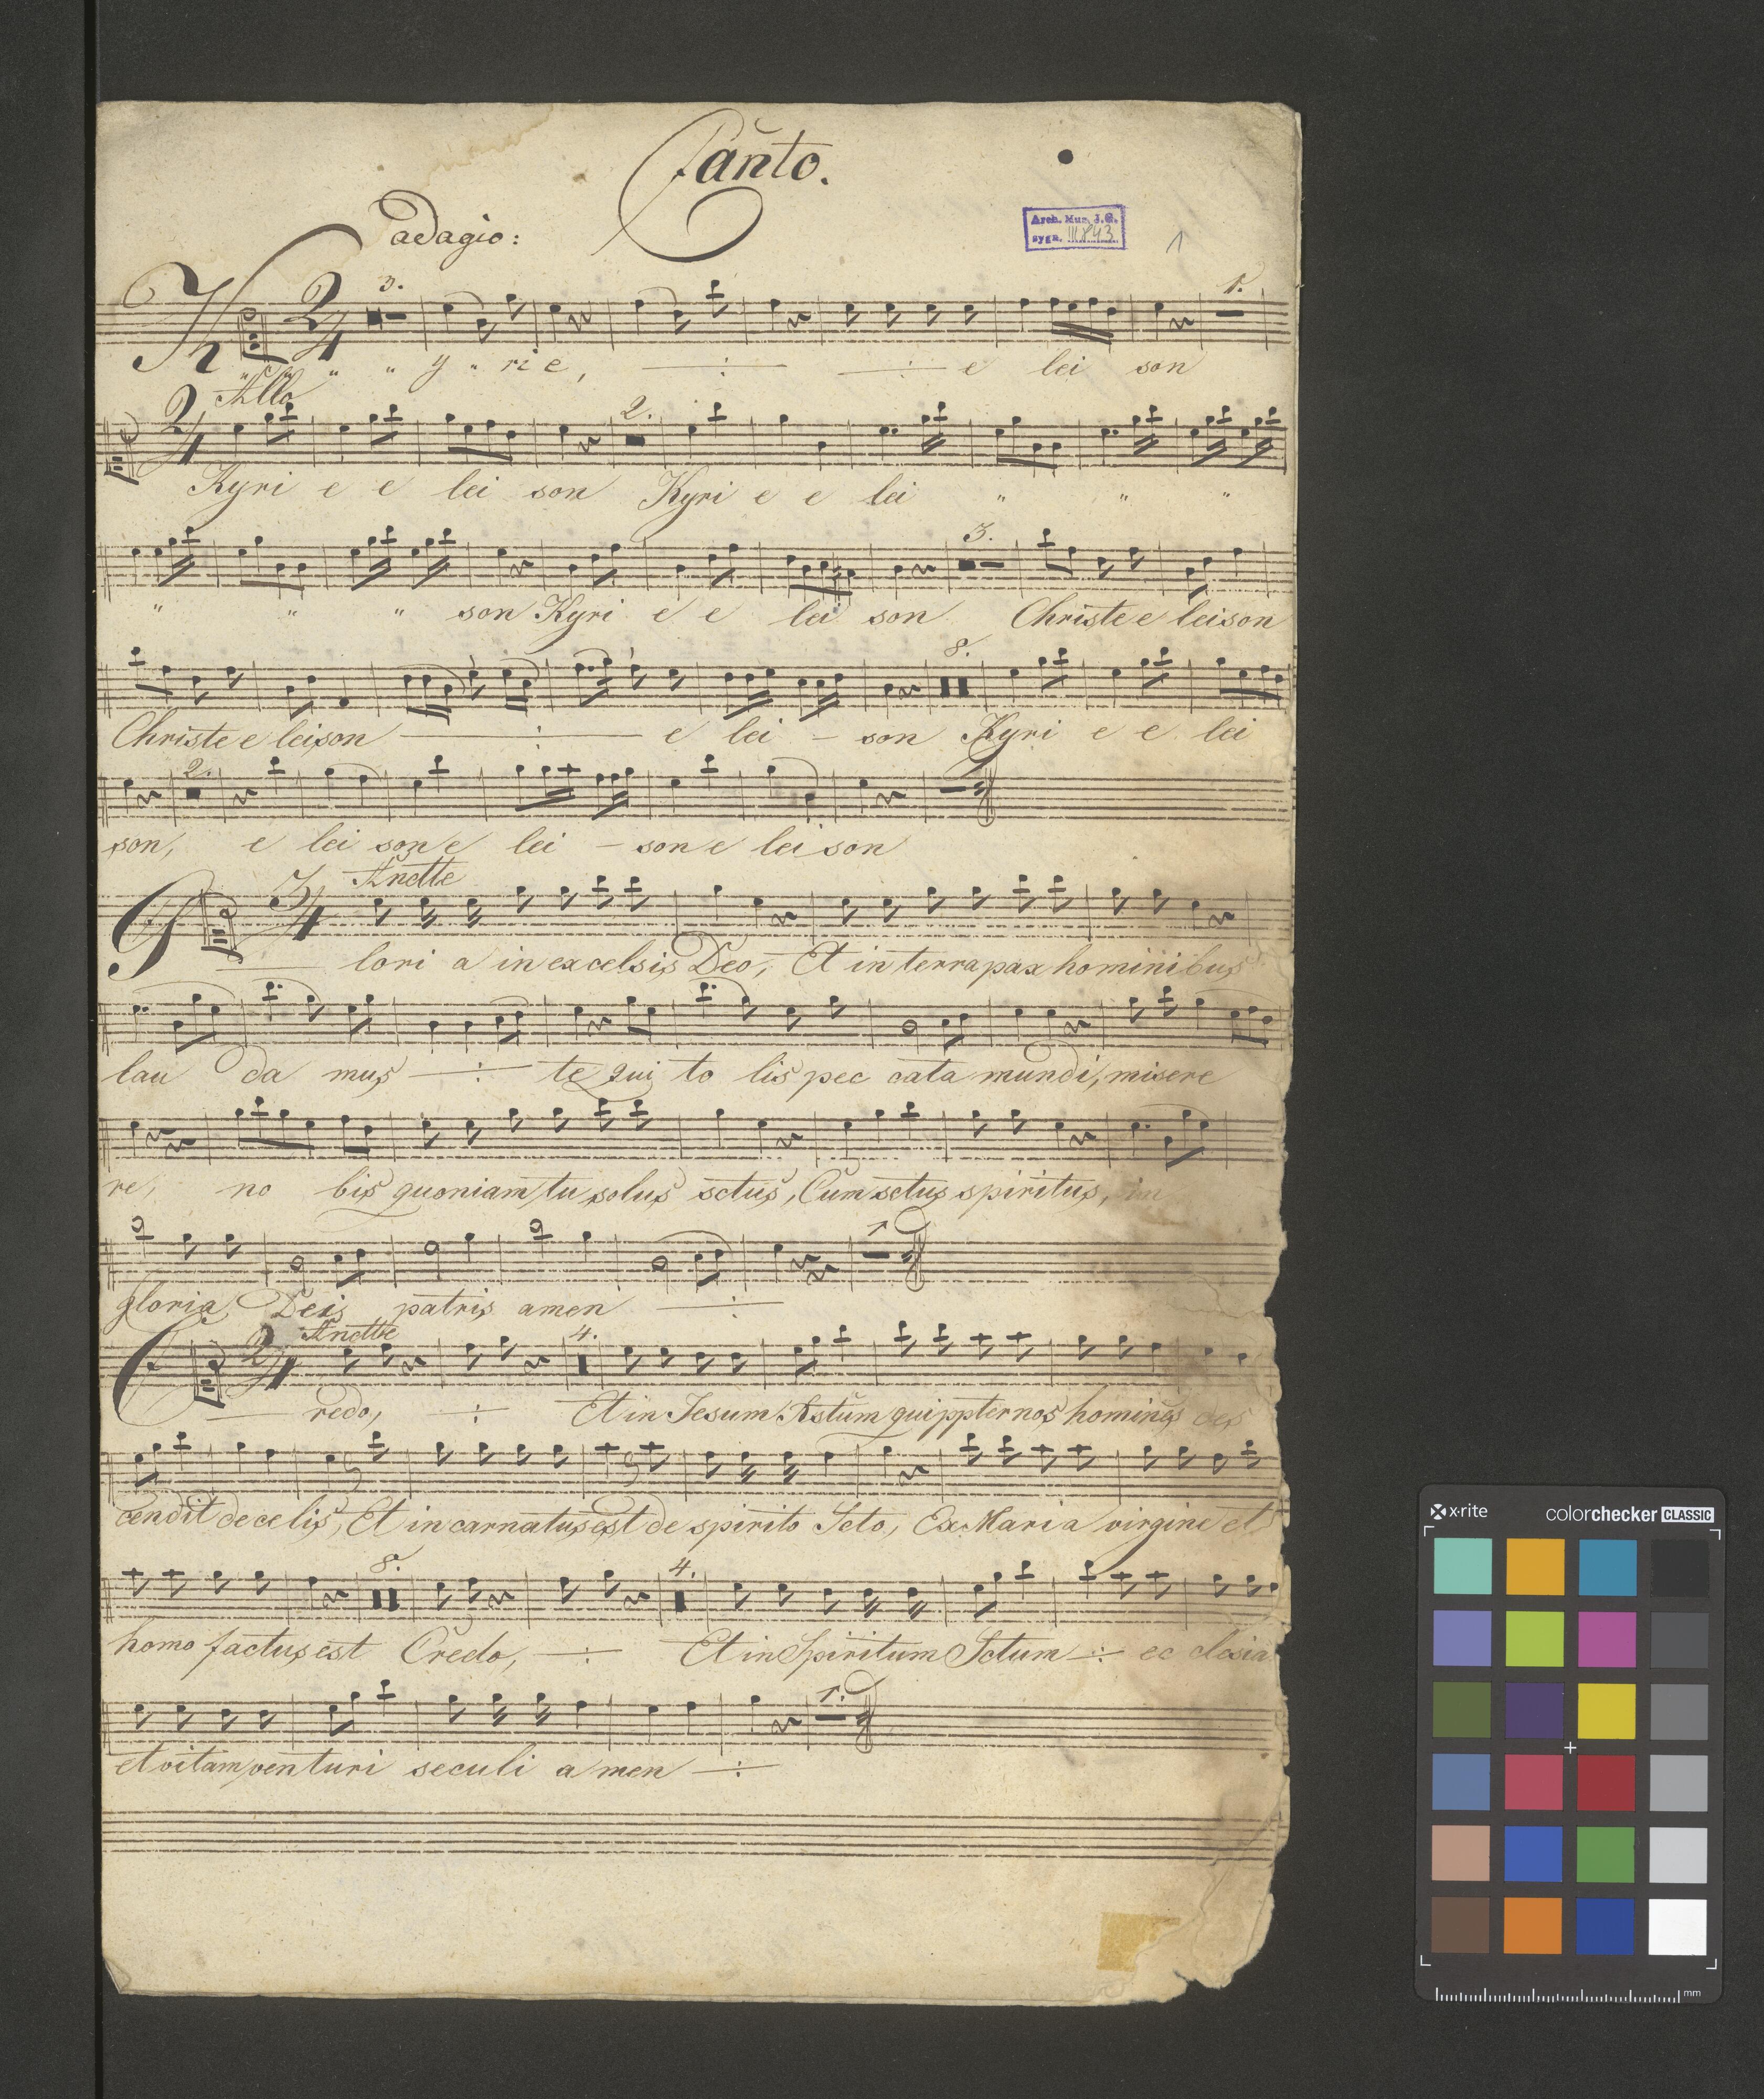 Canto.
adagio:
Arch. Muz. J.G.
sygn. III 843
1
3.
1.
2/4
K " " " " y " ri e, ÷ ÷ e lei son
Allo
2/4
2.
Kyri e e lei son Kyri e e lei " " "
3.
" " " son Kyri e e lei son Christe e leison
8.
Christe e leison ÷ e lei - son Kyri e e lei
2.
son, e lei son e lei - son e lei son
Andtte
3/4
G lori a in excelsis Deo, Et in terra pax hominibus
lau da mus ÷ te qui to lis pec cata mundi, misere
re, no bis quoniam tu solus sctus, Cum sctus spiritus, in
gloria Deis patris amen ÷
Andtte
2/4
4.
C redo, ÷ Et in Jesum Xstum qui ppter nos homines des
cendit de celis, Et incarnatus est de spirito Scto, Ex Maria virgine et
8.
4.
homo factus est Credo, ÷ Et in Spiritum Sctum ÷ ec clesia
1.
et vitam venturi seculi amen ÷
x·rite colorchecker CLASSIC
mm